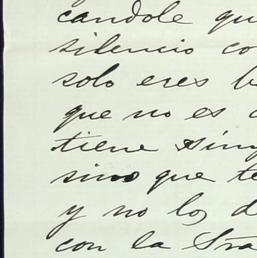 candole qu
silencio co
solo eres b
que no es
tiene sing
sino que te
y no los d
con la Sra